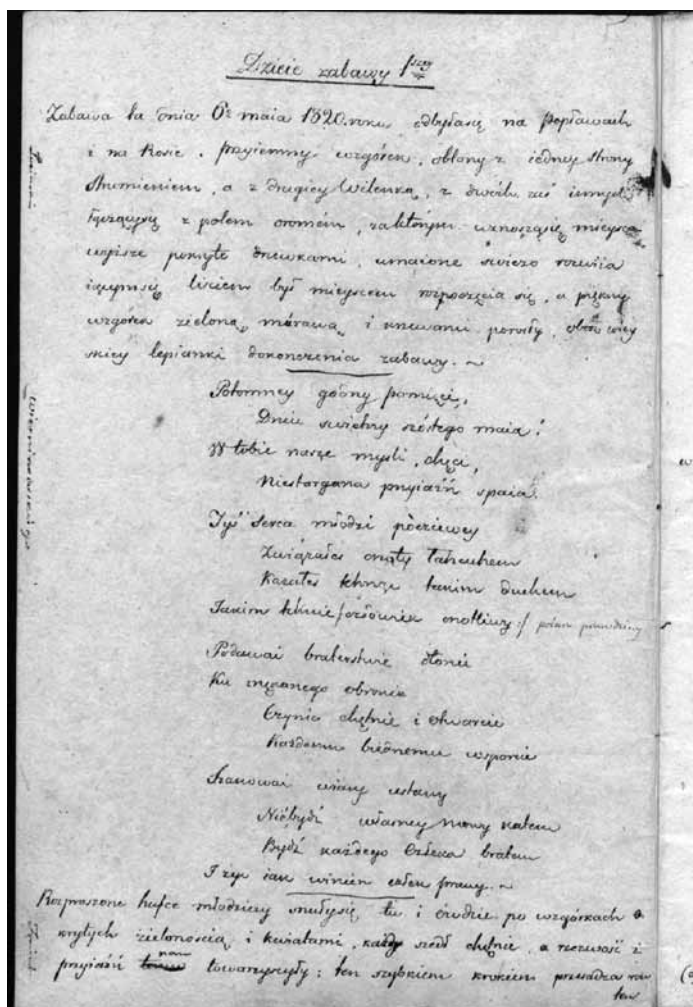 Dzieie zabawy 1szey
Zabawa ta dnia 6º maia 1820. roku odbyłasię na Popławach
i na Rosie. przyiemny wzgórek, oblony z iedney strony
strumieniem, a z drugiey Wilenką, z dwóch zaś innych
łączącysię z polem ornem, za którym wznoszącesię mieysca
wyższe pokryte drzewkami, umaione świeżo rozwiia
iącymsię liściem był mieyscem rozpoczęcia się, a piękny
wzgórek zieloną murawą i krzewami porosły, obok wiey
skiey lepianki dokonczenia zabawy. ~
Potomney godny pamięci,
Dniu szóstego maia!
W tobie nasze mysli, chęci,
Niestargana przyiaźń spaia.
Tyś serca młodzi poczciwey
Związałeś cnoty łańcuchem
Kazałeś tchnąć takim duchem
Jakim tchnie człowiek cnotliwy
Podawai braterskie dłonie
Ku obronie
Czynić chętnie i otwarcie
Każdemu biednemu wsparcie
Szanowai wiary ustawy
Niebydź własney katem
Bydź każdego Człeka bratem
I żyć iak winien człek prawy. ~
Rozproszone hufce młodzieży snułysię tu i ówdzie po wzgórkach o
krytych zielonością i kwiatami, każdy szedł chętnie, a rzezwość i
przyiaźń nam towarzyszyły: ten szybkiem krokiem przesadza
ten